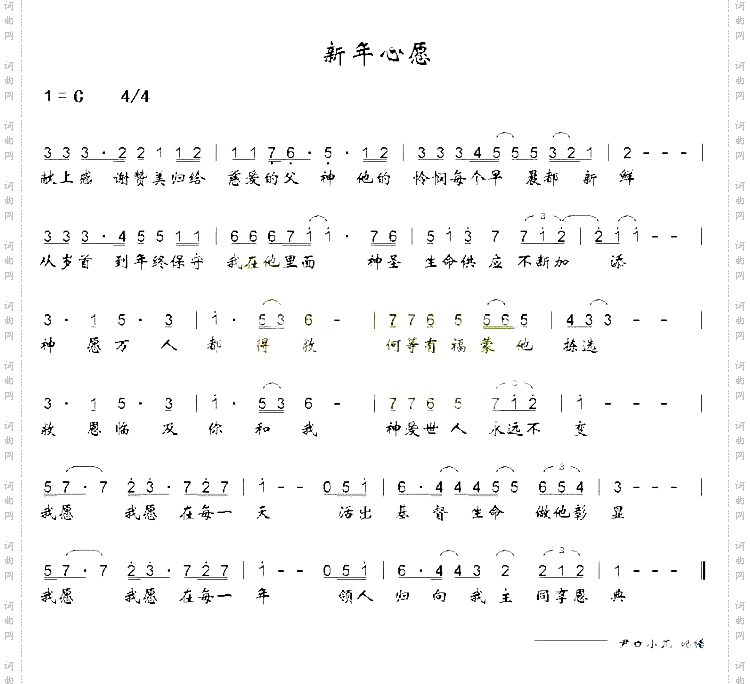 新年心愿
1=C 4/4
3 3 3 · 2 2 1 1 2 | 1 1 7 6 · 5 · 1 2 | 3 3 3 4 5 5 5 3 2 1 | 2 - - - |
献上感 谢赞美归给 慈爱的父 神 他的 怜悯每个早 晨都 新 鲜
3 3 3 · 4 5 5 1 1 | 6 6 6 7 1 1 · 7 6 | 5 1 3 7 7 1 2 | 2 1 1 - - |
从岁首 到年终保守 我在他里面 神圣 生命供 应 不断加 添
3 · 1 5 · 3 | 1 · 5 3 6 - | 7 7 6 5 5 6 5 | 4 3 3 - - |
神 愿万 人 都 得 救 何等有 福 蒙 他 拣选
3 · 1 5 · 3 | 1 · 5 3 6 - | 7 7 6 5 7 1 2 | 1 - - - |
救 恩临 及 你 和 我 神爱世 人 永远不 变
5 7 · 7 2 3 · 7 2 7 | 1 - - 0 5 1 | 6 · 4 4 4 5 5 6 5 4 | 3 - - - |
我愿 我愿 在每一 天 活出 基 督 生命 做他彰 显
5 7 · 7 2 3 · 7 2 7 | 1 - - 0 5 1 | 6 · 4 4 3 2 2 1 2 | 1 - - - ‖
我愿 我愿 在每一 年 领人 归 向 我 主 同享恩 典
词曲网
词曲网
词曲网
词曲网
词曲网
词曲网
词曲网
词曲网
词曲网
词曲网
词曲网
词曲网